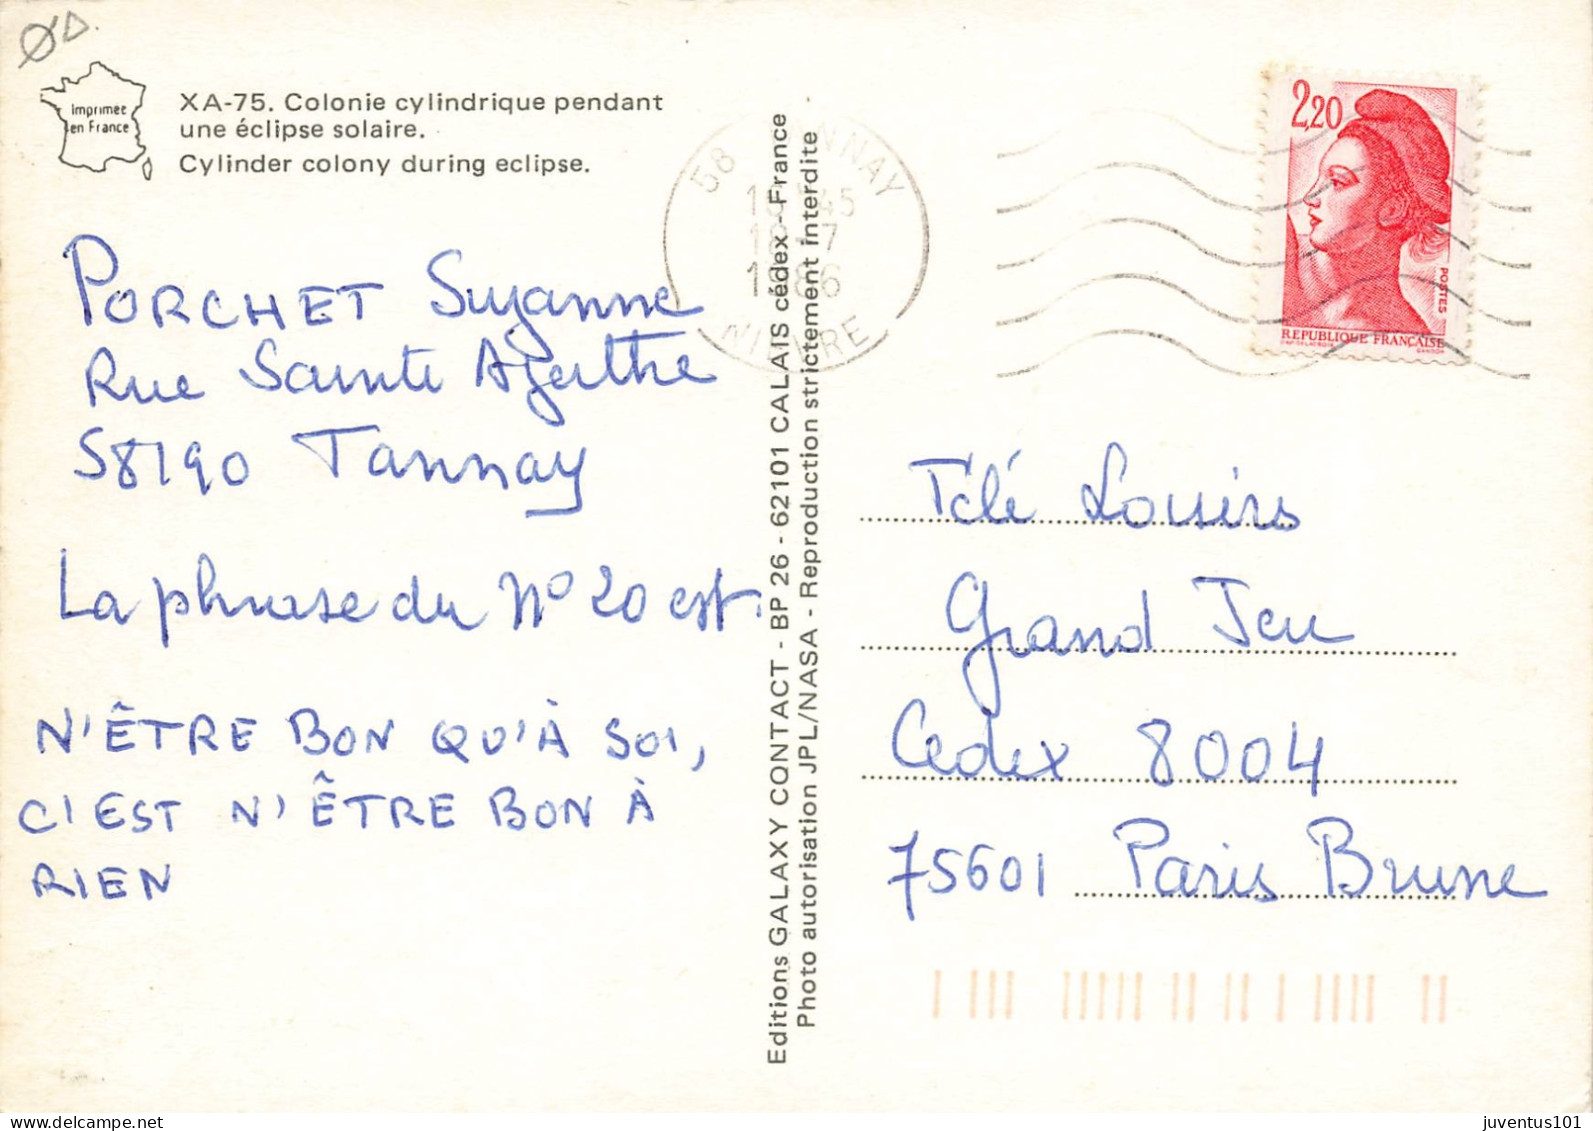 Imprimée
en France
XA-75. Colonie cylindrique pendant
une éclipse solaire.
Cylinder colony during eclipse.
PORCHET Suzanne
Rue Sainte Agathe
58190 Tannay
La phrase du N° 20 est.
N'ÊTRE BON QU'À SOI,
C'EST N'ÊTRE BON À
RIEN
Editions GALAXY CONTACT - BP 26 - 62101 CALAIS cédex - France
Photo autorisation JPL/NASA - Reproduction strictement interdite
58 NNAY
45
1986
NIEVRE
2,20
POSTES
REPUBLIQUE FRANÇAISE
GANDON
Télé Loisirs
Grand Jeu
Cedex 8004
75601 Paris Brune
juventus101